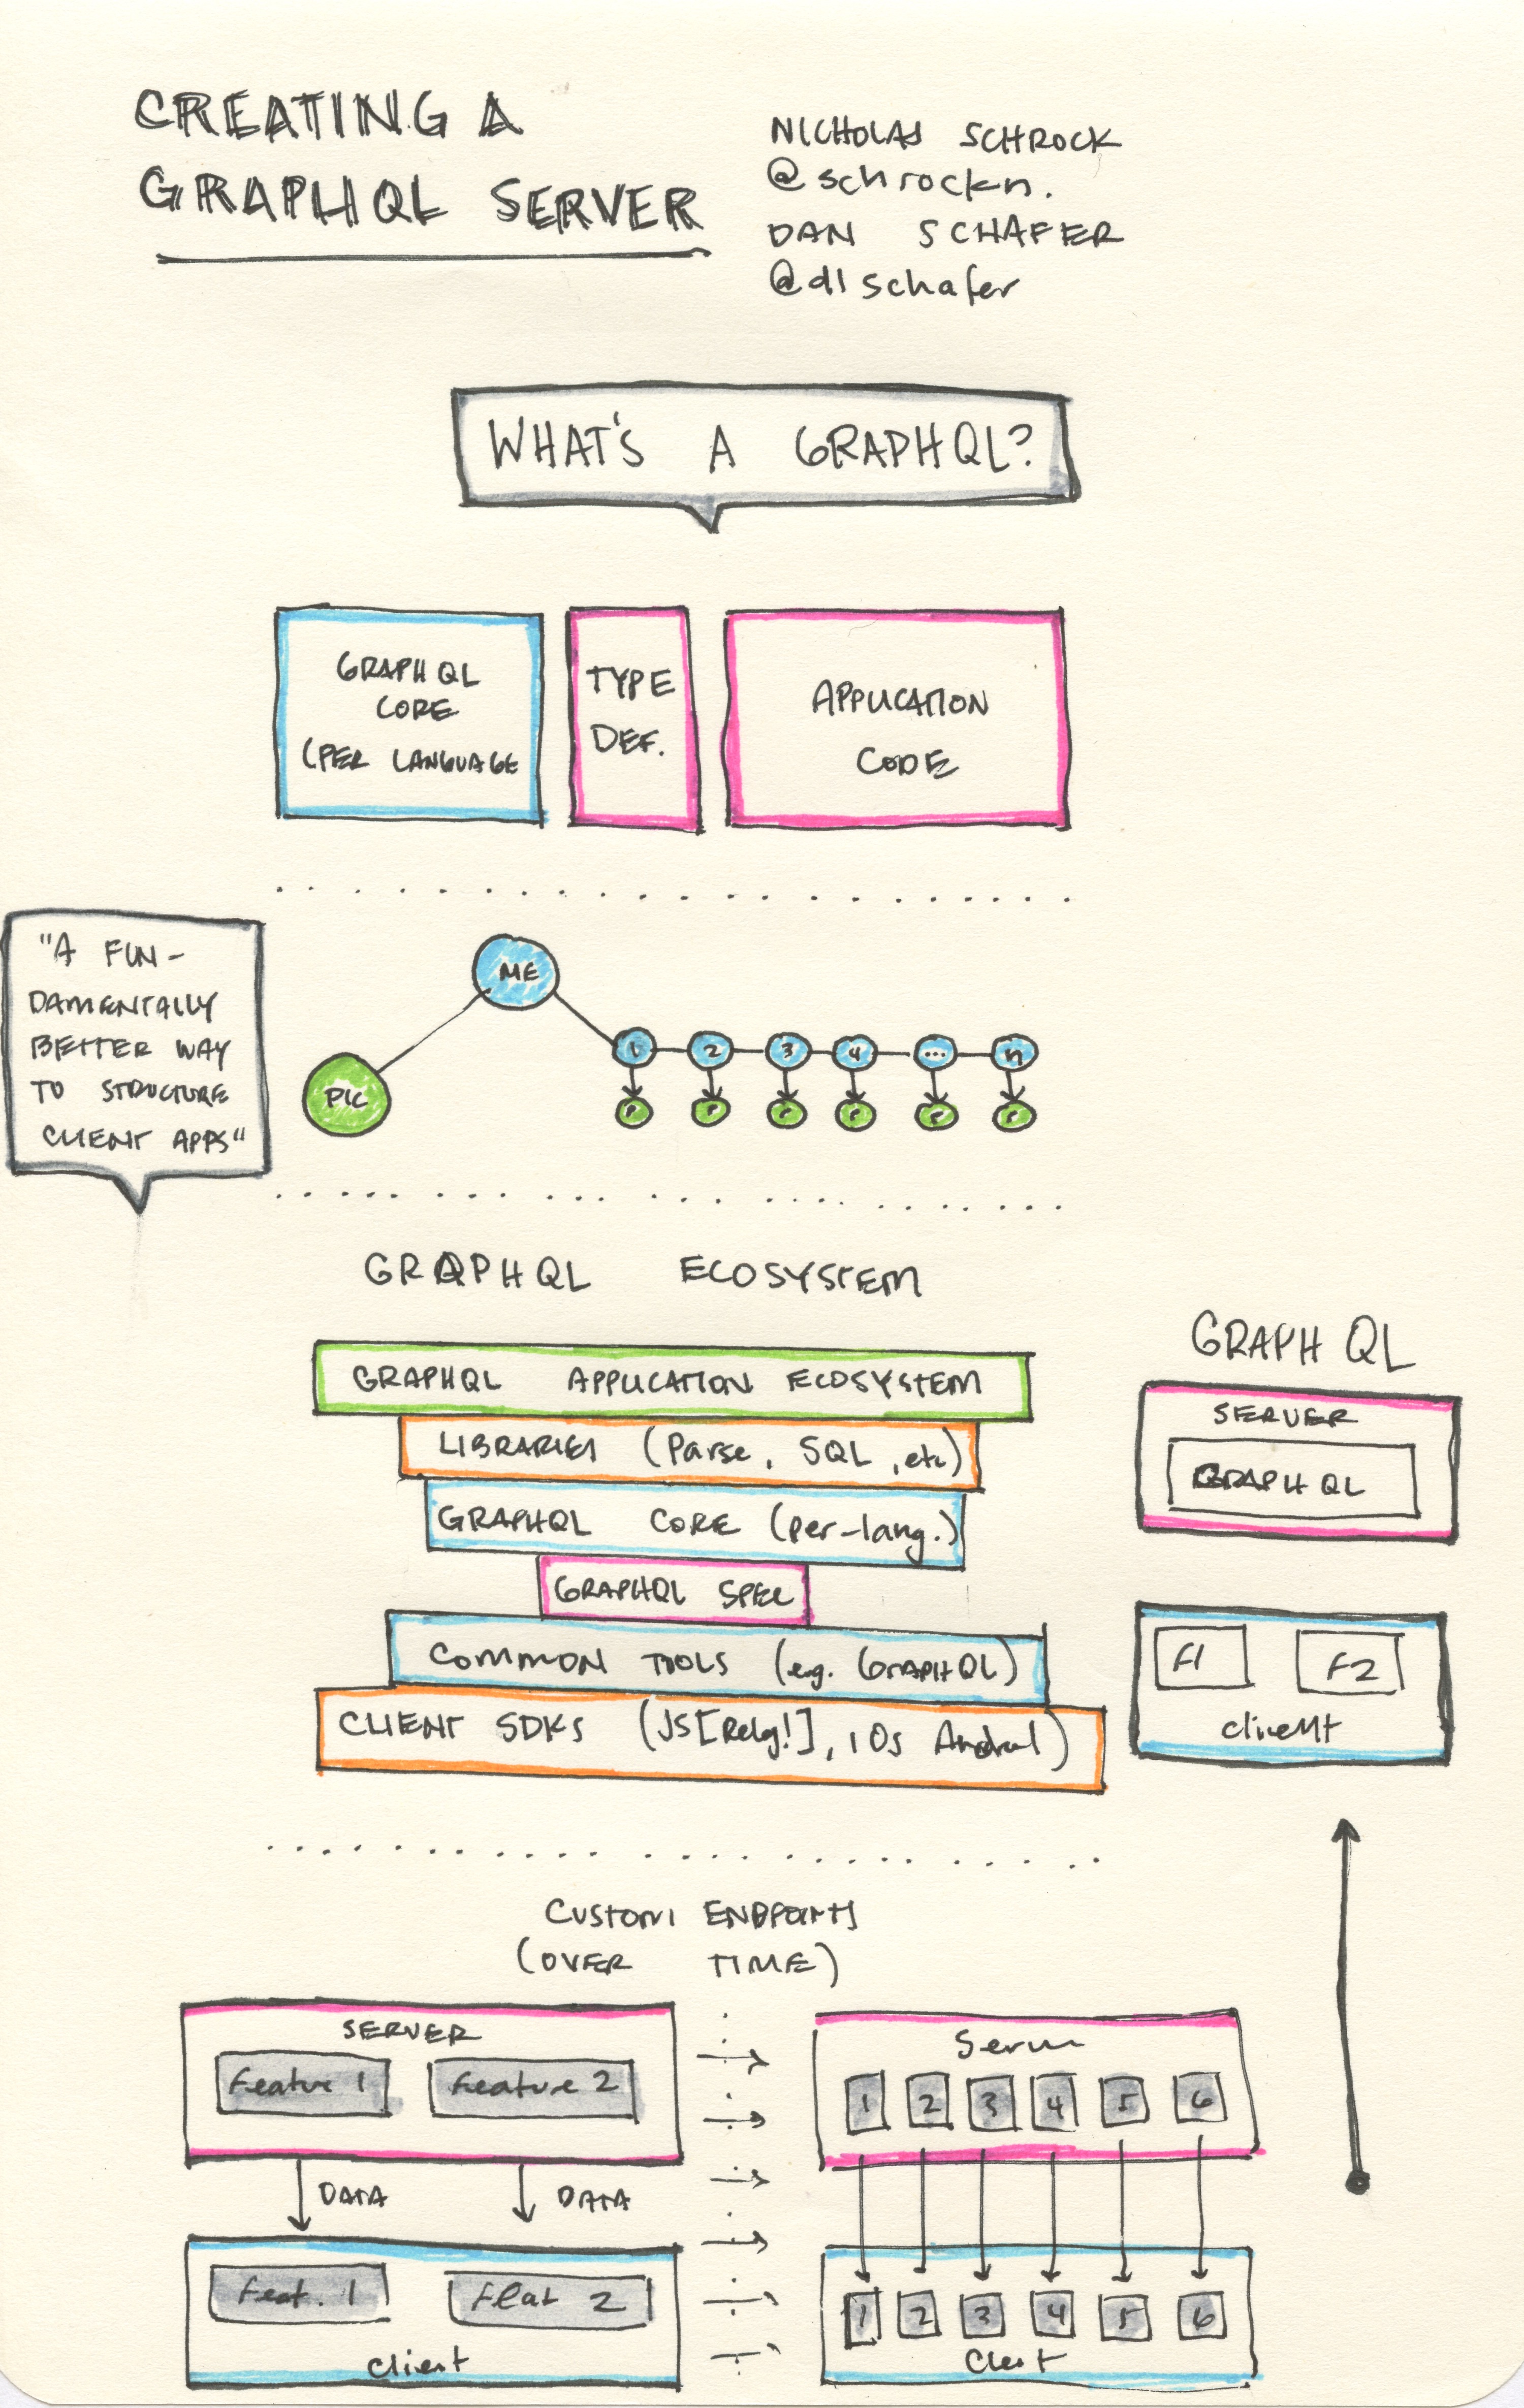 CREATING A
GRAPHQL SERVER
NICHOLAS SCHROCK
@schrockn.
DAN SCHAFER
@dlschafer
WHAT'S A GRAPHQL?
GRAPHQL
CORE
(PER LANGUAGE
TYPE
DEF.
APPLICATION
CODE
"A FUN-
DAMENTALLY
BETTER WAY
TO STRUCTURE
CLIENT APPS"
ME
PIC
1 2 3 4 ... n
P P P P P P
GRAPHQL ECOSYSTEM
GRAPHQL APPLICATION ECOSYSTEM
LIBRARIES (Parse, SQL, etc)
GRAPHQL CORE (per-lang.)
GRAPHQL SPEC
COMMON TOOLS (e.g. GRAPHQL)
CLIENT SDKS (JS[Relay!], iOs Android)
GRAPHQL
SERVER
GRAPHQL
F1 F2
client
CUSTOM ENDPOINTS
(OVER TIME)
SERVER
Feature 1 Feature 2
DATA DATA
Feat. 1 Feat 2
client
Server
1 2 3 4 5 6
1 2 3 4 5 6
Client